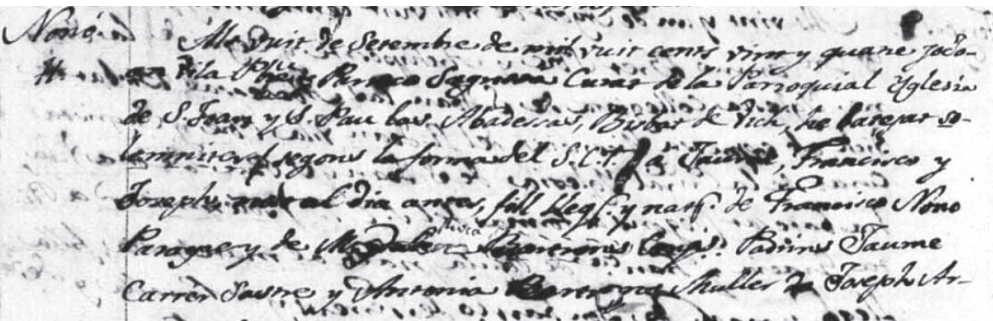 Nono
Als vuit de Setembre de mil vuit cents vint y quatre Jo
Vila Pbre. y Curat de la Parroquial Yglesia
de S. Joan y S. Pau las Abadesas, Bisbat de Vich, he batejat so-
lemnement segons la forma del S.C.T. á Jaume, Francisco y
Joseph, nat al dia antes, fill lleg. y nat. de Francisco Nono
Parayre y de Conjs. Padrins Jaume
Carrer Sastre y Antonia Muller de Joseph Ar-